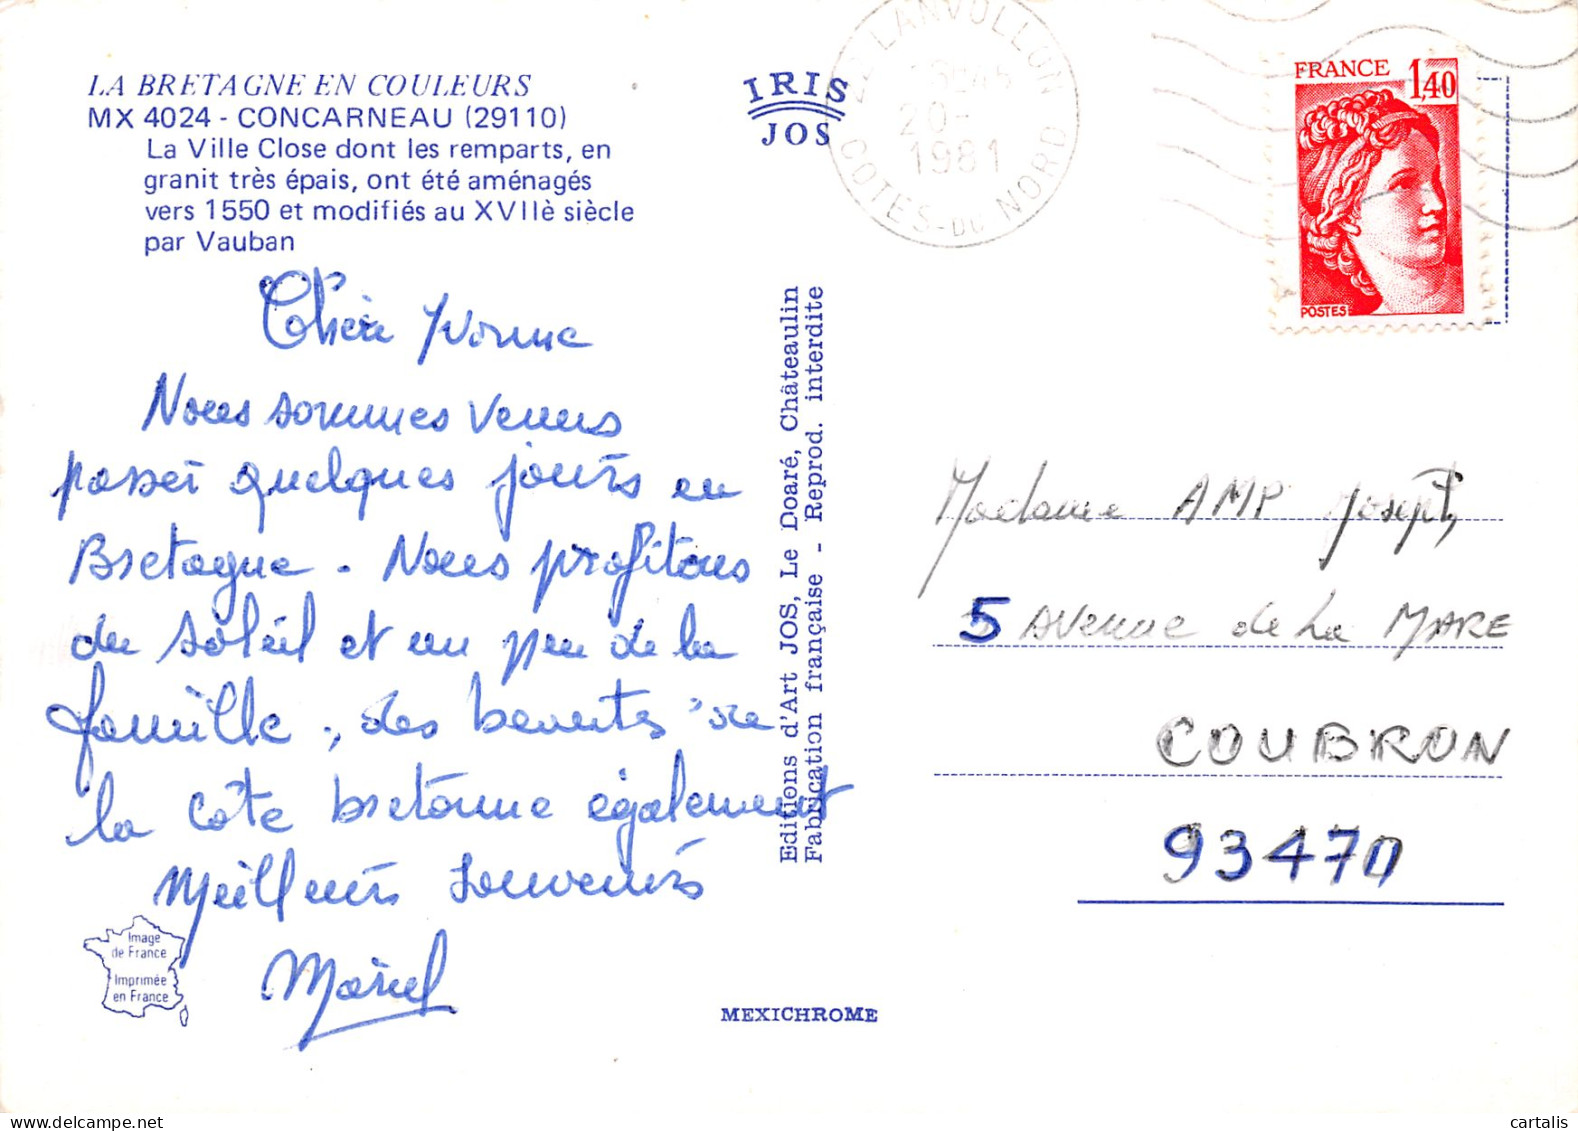 LA BRETAGNE EN COULEURS
MX 4024 - CONCARNEAU (29110)
La Ville Close dont les remparts, en
granit très épais, ont été aménagés
vers 1550 et modifiés au XVIIè siècle
par Vauban
IRIS
JOS
LANVOLLON
20-
1981
COTES-DU NORD
FRANCE
1,40
POSTES
Chère Yvonne
Nous sommes venus
passer quelques jours en
Bretagne - Nous profitons
du soleil et un peu de la
famille, des beautés de
la côte bretonne également
Meilleurs souvenirs
Editions d'Art JOS, Le Doaré, Châteaulin
Fabrication française - Reprod. interdite
Madame AMP Joseph
5 Avenue de La MARE
COUBRON
93470
Image
de France
Imprimée
en France
MEXICHROME
cartalis
www.delcampe.net